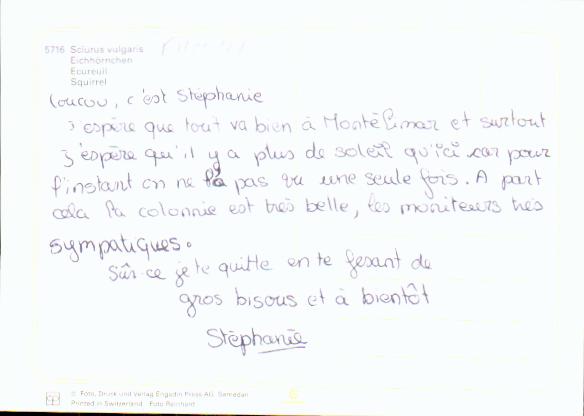 5716 Sciurus vulgaris
Eichhörnchen
Ecureuil
Squirrel
Coucou, c'est Stéphanie
J'espère que tout va bien à Montélimar et surtout
J'espère qu'il y a plus de soleil qu'ici car pour
l'instant on ne l'a pas vu une seule fois. A part
cela la colonnie est très belle, les moniteurs très
sympatiques.
Sûr-ce je te quitte en te fesant de
gros bisous et à bientôt
Stéphanie
© Foto, Druck und Verlag Engadin Press AG, Samedan
Printed in Switzerland Foto Reinhard